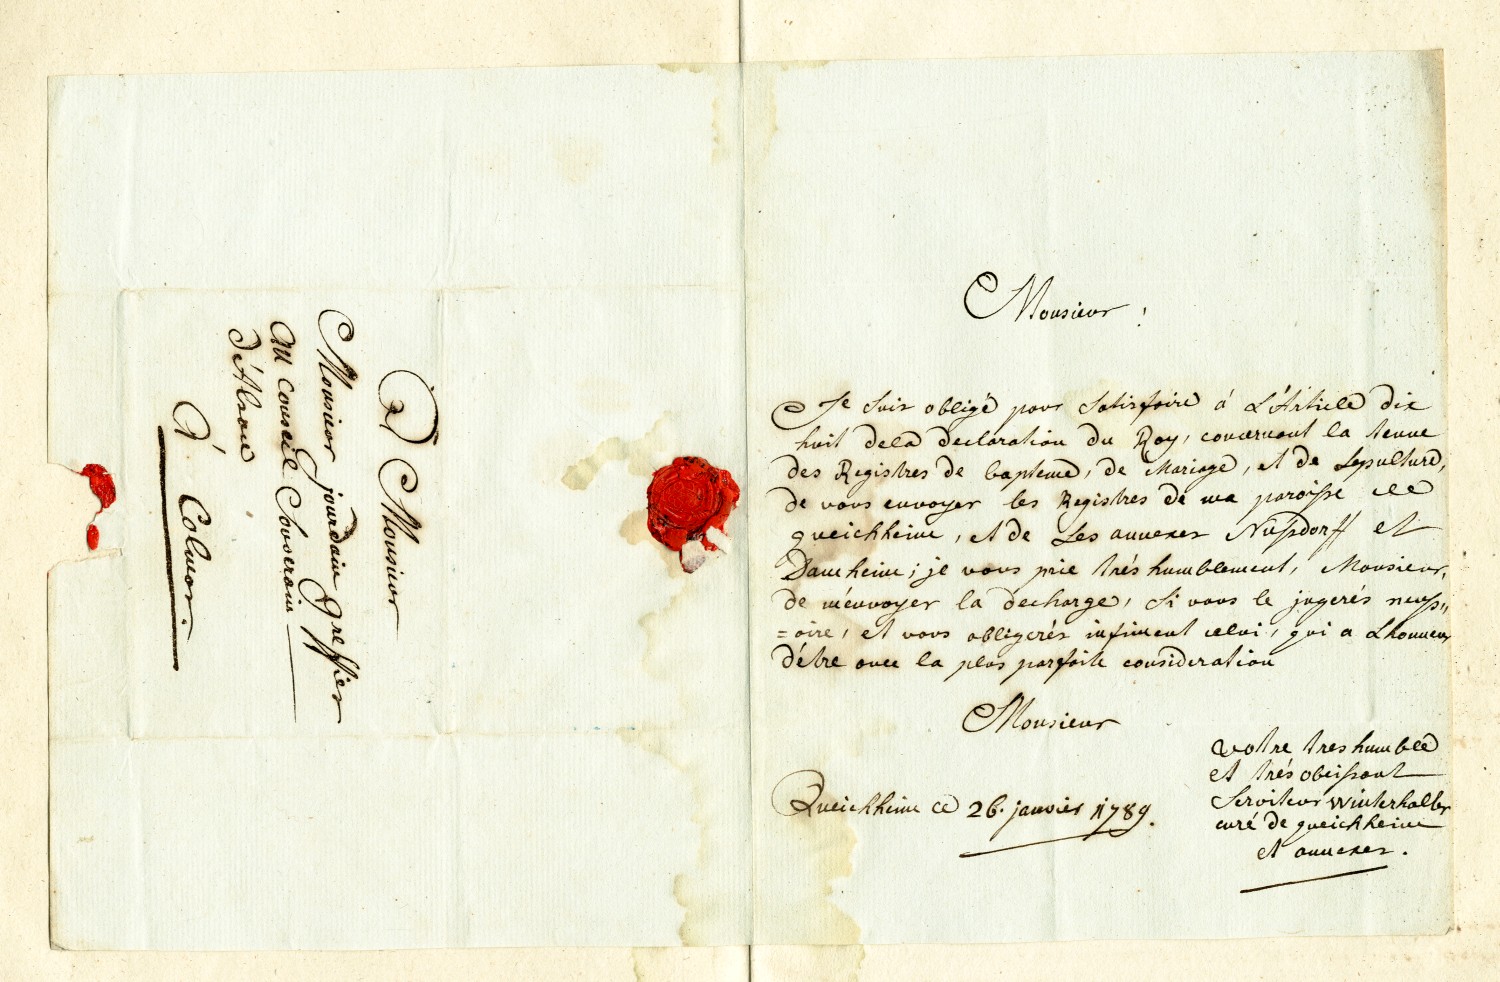 A Monsieur
Monsieur jourdain Greffier
au conseil Souverain
d'Alsace
à Colmar.
Monsieur!
Je suis obligé pour satisfaire á L'Article dix
huit dela declaration du Roy, concernant la tenue
des Registres de bapteme, de Mariage, et de Sepulture,
de vous envoyer les Registres de ma paroisse de
queichheim, et de Ses annexes Nusdorff et
Damheim; je vous prie trés humblement, Monsieur,
de m'envoyer la decharge, Si vous le jugerés necess,,
=aire, et vous obligerés infiniment celui, qui a Lhonneur
d'étre avec la plus parfaite consideration
Monsieur
votre tres humble
et trés obeissant
Serviteur Winterhalter
curé de queichheim
et annexes.
Queichheim ce 26. janvier 1789.